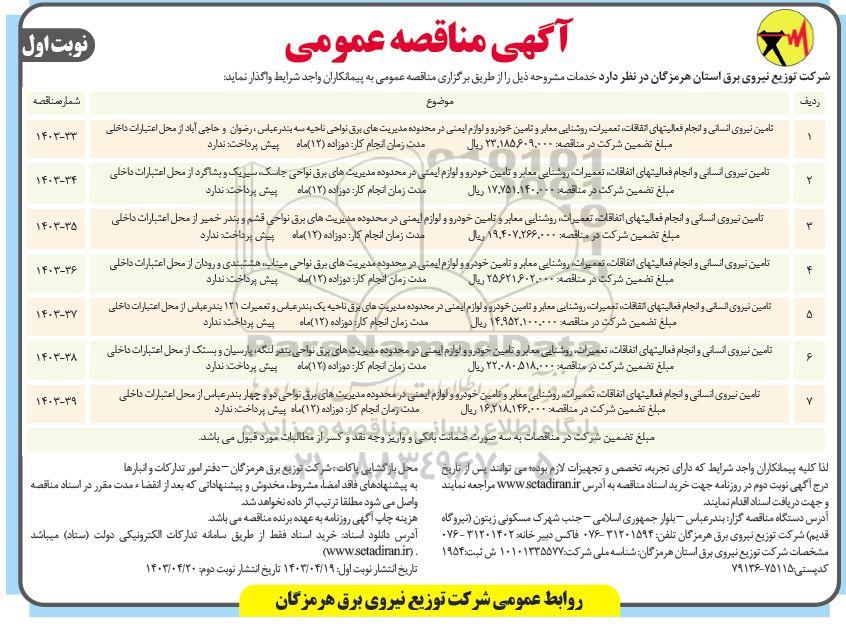 آگهی مناقصه عمومی
نوبت اول
شرکت توزیع نیروی برق استان هرمزگان در نظر دارد خدمات مشروحه ذیل را از طریق برگزاری مناقصه عمومی به پیمانکاران واجد شرایط واگذار نماید:
ردیف موضوع شماره مناقصه
۱ تامین نیروی انسانی و انجام فعالیتهای اتفاقات، تعمیرات، روشنایی معابر و تامین خودرو و لوازم ایمنی در محدوده مدیریت های برق نواحی ناحیه سه بندرعباس ، رضوان و حاجی آباد از محل اعتبارات داخلی ۱۴۰۳-۳۳
مبلغ تضمین شرکت در مناقصه: ۲۳.۱۸۵.۶۰۹.۰۰۰ ریال مدت زمان انجام کار: دوزاده (۱۲)ماه پیش پرداخت: ندارد
۲ تامین نیروی انسانی و انجام فعالیتهای اتفاقات، تعمیرات، روشنایی معابر و تامین خودرو و لوازم ایمنی در محدوده مدیریت های برق نواحی جاسک، سیریک و بشاگرد از محل اعتبارات داخلی ۱۴۰۳-۳۴
مبلغ تضمین شرکت در مناقصه: ۱۷.۷۵۱.۱۴۰.۰۰۰ ریال مدت زمان انجام کار: دوزاده (۱۲)ماه پیش پرداخت: ندارد
۳ تامین نیروی انسانی و انجام فعالیتهای اتفاقات، تعمیرات، روشنایی معابر و تامین خودرو و لوازم ایمنی در محدوده مدیریت های برق نواحی قشم و بندر خمیر از محل اعتبارات داخلی ۱۴۰۳-۳۵
مبلغ تضمین شرکت در مناقصه: ۱۹.۴۰۷.۲۶۶.۰۰۰ ریال مدت زمان انجام کار: دوزاده (۱۲)ماه پیش پرداخت: ندارد
۴ تامین نیروی انسانی و انجام فعالیتهای اتفاقات، تعمیرات، روشنایی معابر و تامین خودرو و لوازم ایمنی در محدوده مدیریت های برق نواحی میناب، هشتبندی و رودان از محل اعتبارات داخلی ۱۴۰۳-۳۶
مبلغ تضمین شرکت در مناقصه: ۲۵.۶۲۱.۶۰۲.۰۰۰ ریال مدت زمان انجام کار: دوزاده (۱۲)ماه پیش پرداخت: ندارد
۵ تامین نیروی انسانی و انجام فعالیتهای اتفاقات، تعمیرات، روشنایی معابر و تامین خودرو و لوازم ایمنی در محدوده مدیریت های برق ناحیه یک بندرعباس و تعمیرات ۱۲۱ بندرعباس از محل اعتبارات داخلی ۱۴۰۳-۳۷
مبلغ تضمین شرکت در مناقصه: ۱۴.۹۵۲.۱۰۰.۰۰۰ ریال مدت زمان انجام کار: دوزاده (۱۲)ماه پیش پرداخت: ندارد
۶ تامین نیروی انسانی و انجام فعالیتهای اتفاقات، تعمیرات، روشنایی معابر و تامین خودرو و لوازم ایمنی در محدوده مدیریت های برق نواحی بندر لنگه، پارسیان و بستک از محل اعتبارات داخلی ۱۴۰۳-۳۸
مبلغ تضمین شرکت در مناقصه: ۲۲.۰۸۰.۵۱۸.۰۰۰ ریال مدت زمان انجام کار: دوزاده (۱۲)ماه پیش پرداخت: ندارد
۷ تامین نیروی انسانی و انجام فعالیتهای اتفاقات، تعمیرات، روشنایی معابر و تامین خودرو و لوازم ایمنی در محدوده مدیریت های برق نواحی دو و چهار بندرعباس از محل اعتبارات داخلی ۱۴۰۳-۳۹
مبلغ تضمین شرکت در مناقصه: ۱۶.۲۱۸.۱۴۶.۰۰۰ ریال مدت زمان انجام کار: دوزاده (۱۲)ماه پیش پرداخت: ندارد
مبلغ تضمین شرکت در مناقصات به سه صورت ضمانت بانکی و واریز وجه نقد و کسر از مطالبات مورد قبول می باشد.
لذا کلیه پیمانکاران واجد شرایط که دارای تجربه، تخصص و تجهیزات لازم بوده؛ می توانند پس از تاریخ
درج آگهی نوبت دوم در روزنامه جهت خرید اسناد مناقصه به آدرس www.setadiran.ir مراجعه نمایند
و جهت دریافت اسناد اقدام نمایند.
آدرس دستگاه مناقصه گزار: بندرعباس – بلوار جمهوری اسلامی – جنب شهرک مسکونی زیتون (نیروگاه
قدیم) شرکت توزیع نیروی برق هرمزگان تلفن: ۳۱۲۰۱۵۹۴ -۰۷۶ فاکس دبیر خانه: ۳۱۲۰۱۴۰۲ -۰۷۶
مشخصات شرکت توزیع نیروی برق استان هرمزگان: شناسه ملی شرکت:۱۰۱۰۱۳۳۵۵۷۷ ش ثبت:۱۹۵۴
کدپستی:۷۵۱۱۵-۷۹۱۳۶
محل بازگشایی پاکات: شرکت توزیع برق هرمزگان – دفتر امور تدارکات و انبارها
به پیشنهادهای فاقد امضا، مشروط، مخدوش و پیشنهاداتی که بعد از انقضاء مدت مقرر در اسناد مناقصه
واصل می شود مطلقا ترتیب اثر داده نخواهد شد.
هزینه چاپ آگهی روزنامه به عهده برنده مناقصه می باشد.
آدرس دانلود اسناد: خرید اسناد فقط از طریق سامانه تدارکات الکترونیکی دولت (ستاد) میباشد
. (www.setadiran.ir)
تاریخ انتشار نوبت اول: ۱۴۰۳/۰۴/۱۹ تاریخ انتشار نوبت دوم: ۱۴۰۳/۰۴/۲۰
روابط عمومی شرکت توزیع نیروی برق هرمزگان
ParsNamadData
پایگاه اطلاع رسانی مناقصه و مزایده
۰۲۱-۸۸۳۴۹۶۷۰-۵